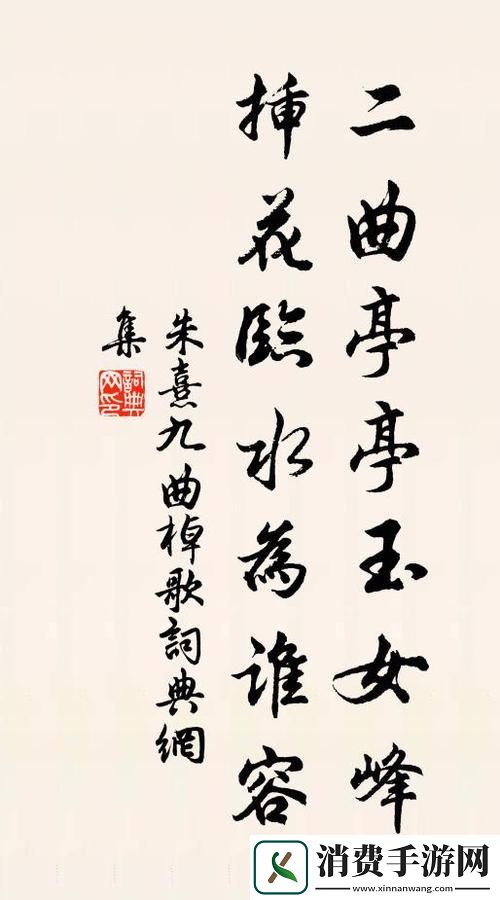 二曲亭亭玉女峰
挿花臨水為誰容
朱熹九曲棹歌詞典網
集
詞典网印
消费手游网
www.xinnanwang.com